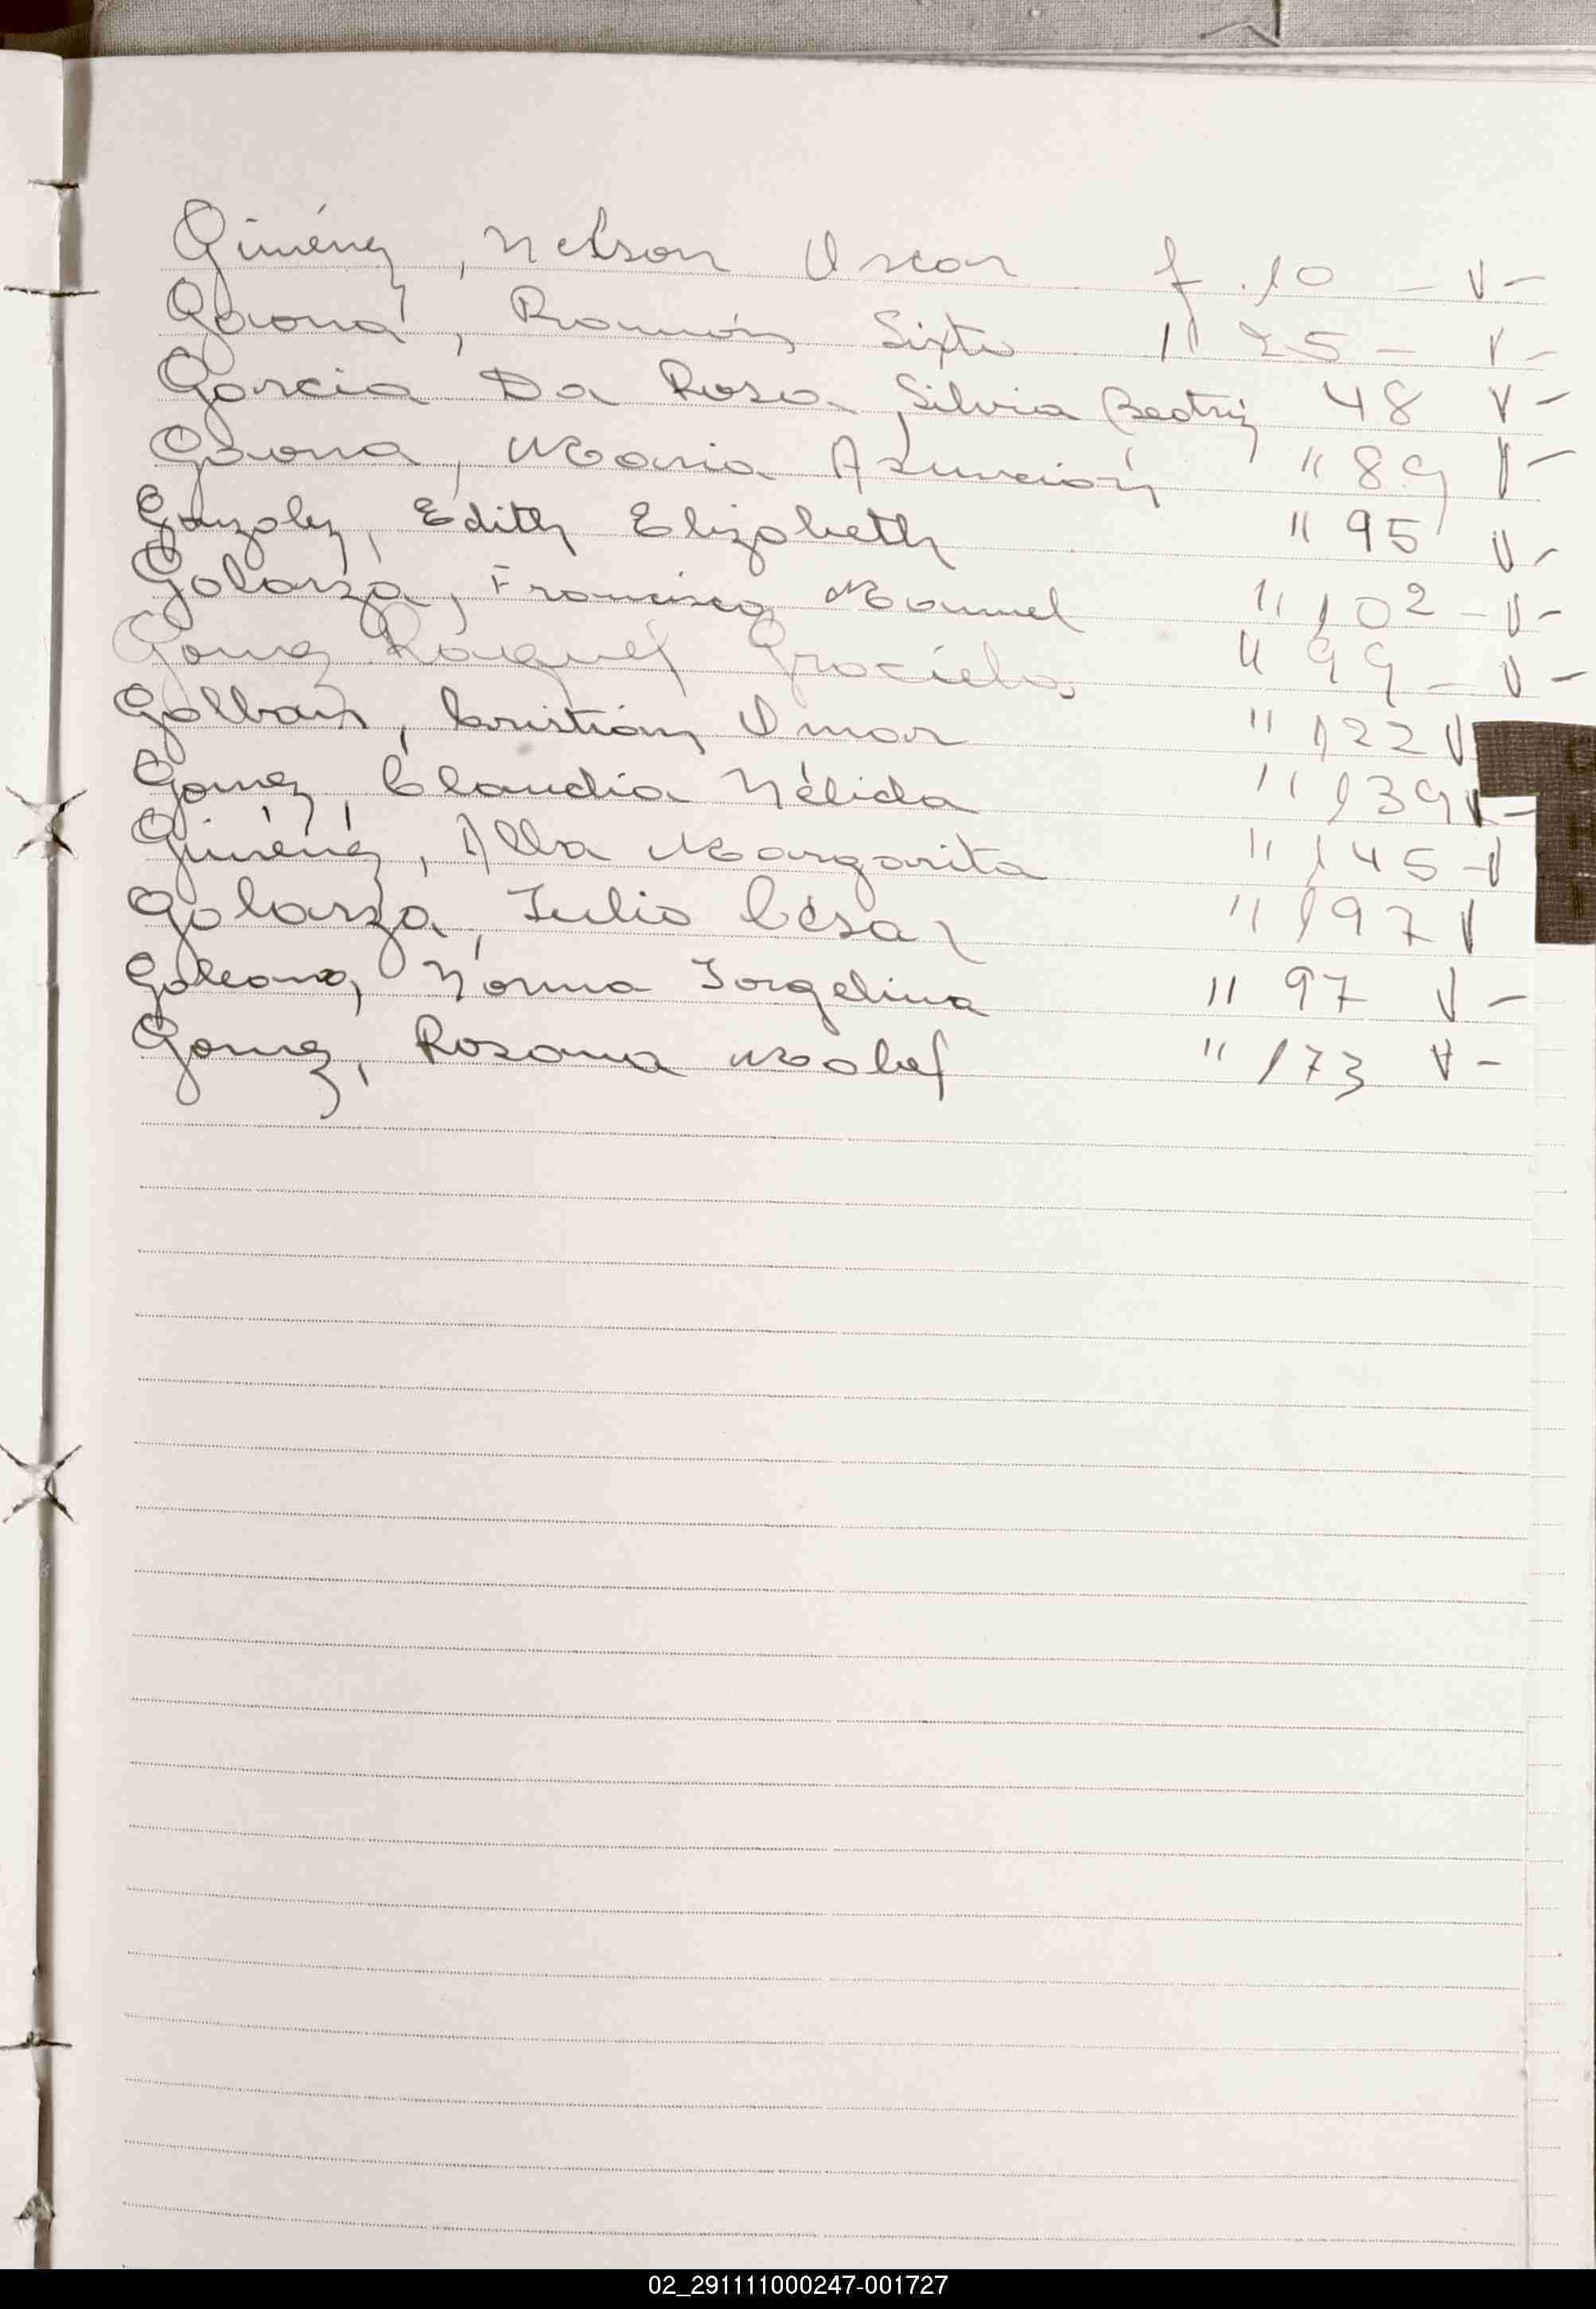 Giménez, Nelson Oscar f. 10 - V-
Gaona, Ramón Sixto " 25 - V-
Garcia Da Rosa, Silvia Beatriz 48 V-
Gaona, Maria Asunción " 89 V-
Gonzalez, Edith Elizabeth " 95 V-
Golarza, Francisco Manuel " 102 - V-
Gomez Raquel Graciela " 99 - V-
Galban, Cristian Omar " 122 V
Gomez, Claudia Nélida " 139 V-
Giménez, Alba Margarita " 145 - V
Golarza, Julio César " 197 V
Galeano, Norma Jorgelina " 97 V-
Gomez, Rosana Mabel " 173 V-
02_291111000247-001727